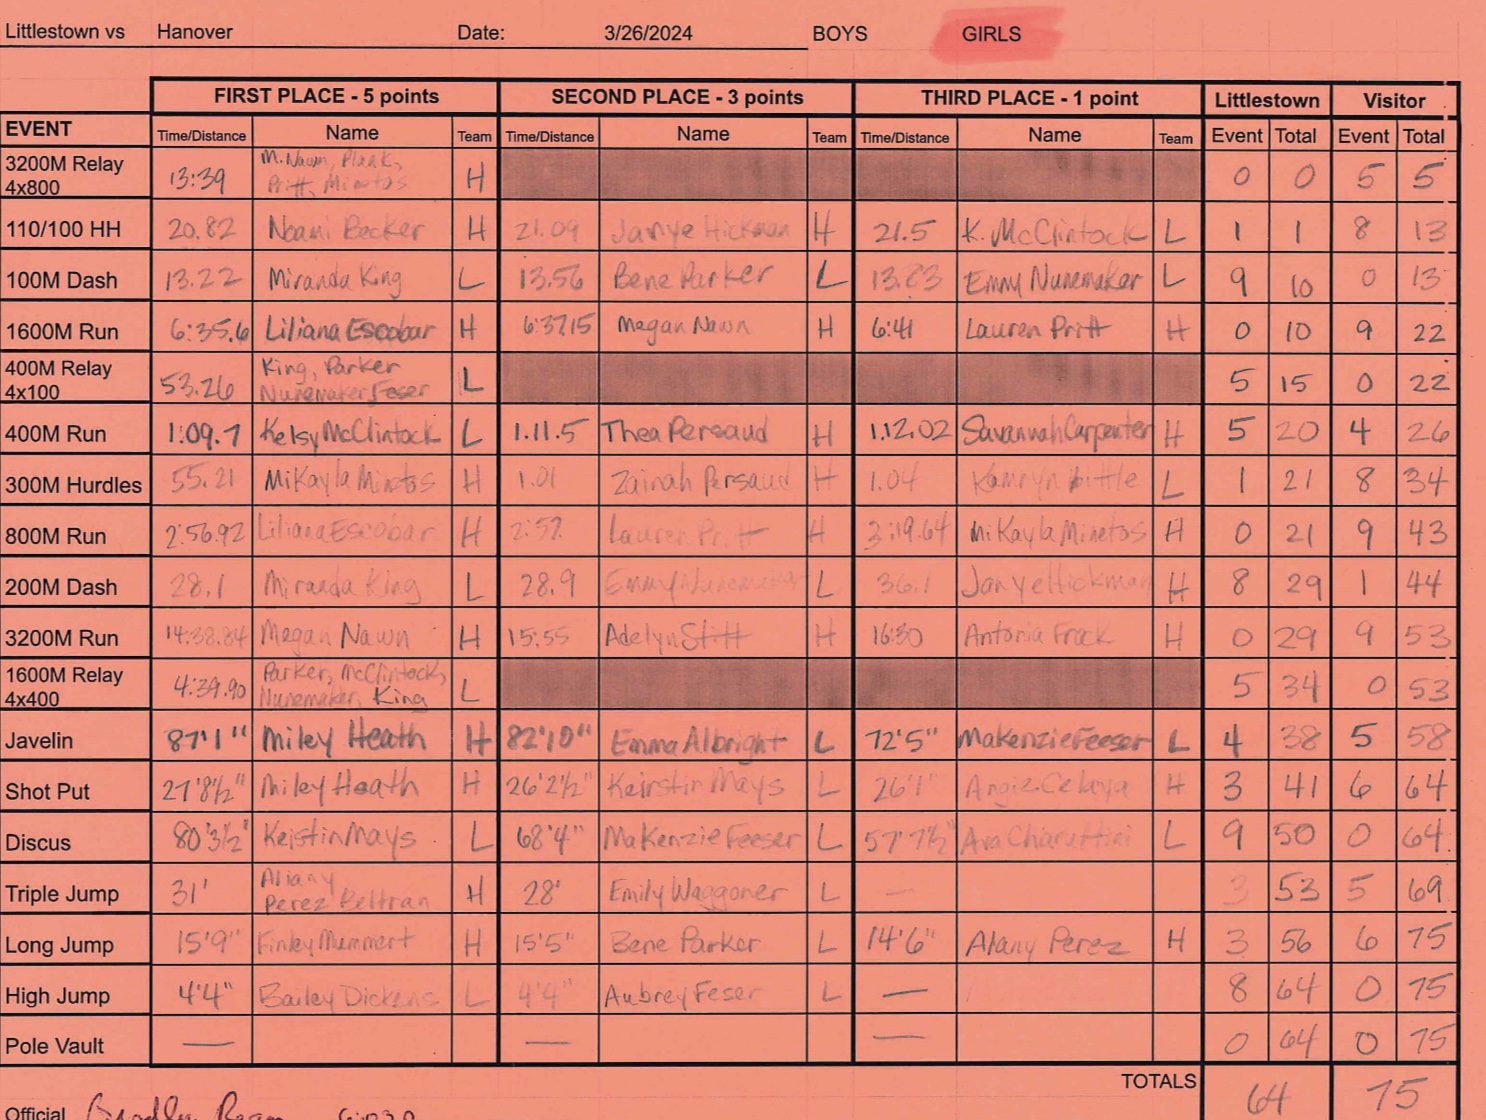 Littlestown vs Hanover Date: 3/26/2024 BOYS GIRLS
FIRST PLACE - 5 points SECOND PLACE - 3 points THIRD PLACE - 1 point Littlestown Visitor
EVENT Time/Distance Name Team Time/Distance Name Team Time/Distance Name Team Event Total Event Total
3200M Relay 4x800 13:39 M. Nawn, Plank, Pritt, Minetos H 0 0 5 5
110/100 HH 20.82 Noami Becker H 21.09 Janye Hickman H 21.5 K. McClintock L 1 1 8 13
100M Dash 13.22 Miranda King L 13.56 Bene Parker L 13.83 Emmy Nunemaker L 9 10 0 13
1600M Run 6:35.6 Liliana Escobar H 6:37.15 Megan Nawn H 6:41 Lauren Pritt H 0 10 9 22
400M Relay 4x100 53.26 King, Parker Nunemaker Feser L 5 15 0 22
400M Run 1:09.7 Kelsy McClintock L 1.11.5 Thea Persaud H 1.12.02 Savannah Carpenter H 5 20 4 26
300M Hurdles 55.21 MiKayla Minetos H 1.01 Zainah Persaud H 1.04 Kamryn Kittle L 1 21 8 34
800M Run 2:56.92 Liliana Escobar H 2:57. Lauren Pritt H 3:19.64 MiKayla Minetos H 0 21 9 43
200M Dash 28.1 Miranda King L 28.9 Emmy Nunemaker L 36.1 Janye Hickman H 8 29 1 44
3200M Run 14:38.84 Megan Nawn H 15:55 Adelyn Stitt H 16:30 Antonia Frock H 0 29 9 53
1600M Relay 4x400 4:39.90 Parker, McClintock, Nunemaker, King L 5 34 0 53
Javelin 87'1" Miley Heath H 82'10" Emma Albright L 72'5" Makenzie Feeser L 4 38 5 58
Shot Put 27'8½" Miley Heath H 26'2½" Keirstin Mays L 26'1" Angie H 3 41 6 64
Discus 80'3½" Keistin Mays L 68'4" MaKenzie Feeser L 57'7½" Ava Chiaruttini L 9 50 0 64
Triple Jump 31' Aliany Perez Beltran H 28' Emily Waggoner L — 3 53 5 69
Long Jump 15'9" Finley Mummert H 15'5" Bene Parker L 14'6" Alany Perez H 3 56 6 75
High Jump 4'4" Bailey Dickens L 4'4" Aubrey Feser L — 8 64 0 75
Pole Vault — — — 0 64 0 75
TOTALS 64 75
Official